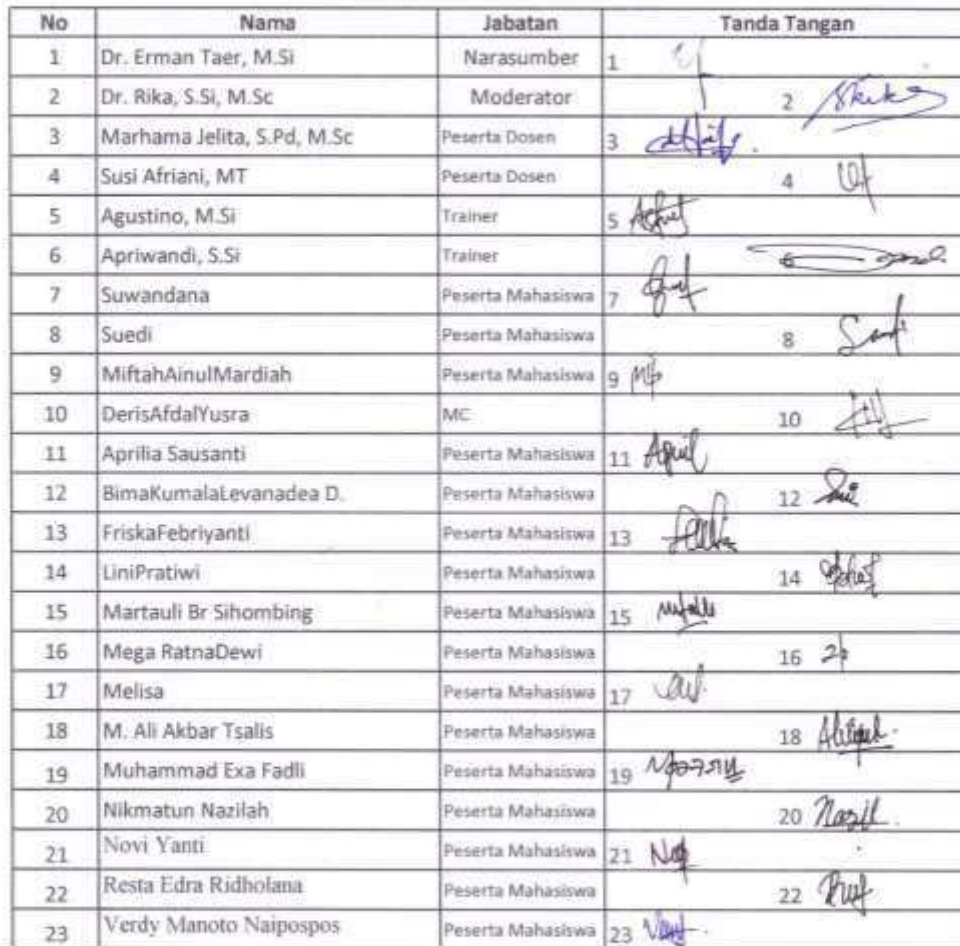 No Nama Jabatan Tanda Tangan
1 Dr. Erman Taer, M.Si Narasumber 1
2 Dr. Rika, S.Si, M.Sc Moderator 2
3 Marhama Jelita, S.Pd, M.Sc Peserta Dosen 3
4 Susi Afriani, MT Peserta Dosen 4
5 Agustino, M.Si Trainer 5
6 Apriwandi, S.Si Trainer 6
7 Suwandana Peserta Mahasiswa 7
8 Suedi Peserta Mahasiswa 8
9 MiftahAinulMardiah Peserta Mahasiswa 9
10 DerisAfdalYusra MC 10
11 Aprilia Sausanti Peserta Mahasiswa 11 April
12 BimaKumalaLevanadea D. Peserta Mahasiswa 12
13 FriskaFebriyanti Peserta Mahasiswa 13
14 LiniPratiwi Peserta Mahasiswa 14
15 Martauli Br Sihombing Peserta Mahasiswa 15
16 Mega RatnaDewi Peserta Mahasiswa 16
17 Melisa Peserta Mahasiswa 17
18 M. Ali Akbar Tsalis Peserta Mahasiswa 18
19 Muhammad Exa Fadli Peserta Mahasiswa 19
20 Nikmatun Nazilah Peserta Mahasiswa 20
21 Novi Yanti Peserta Mahasiswa 21
22 Resta Edra Ridholana Peserta Mahasiswa 22
23 Verdy Manoto Naipospos Peserta Mahasiswa 23